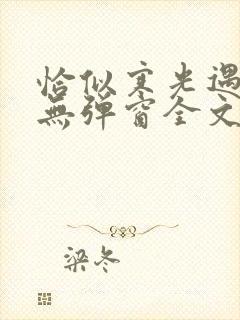 恰似寒光遇
無彈窗全文
梁冬